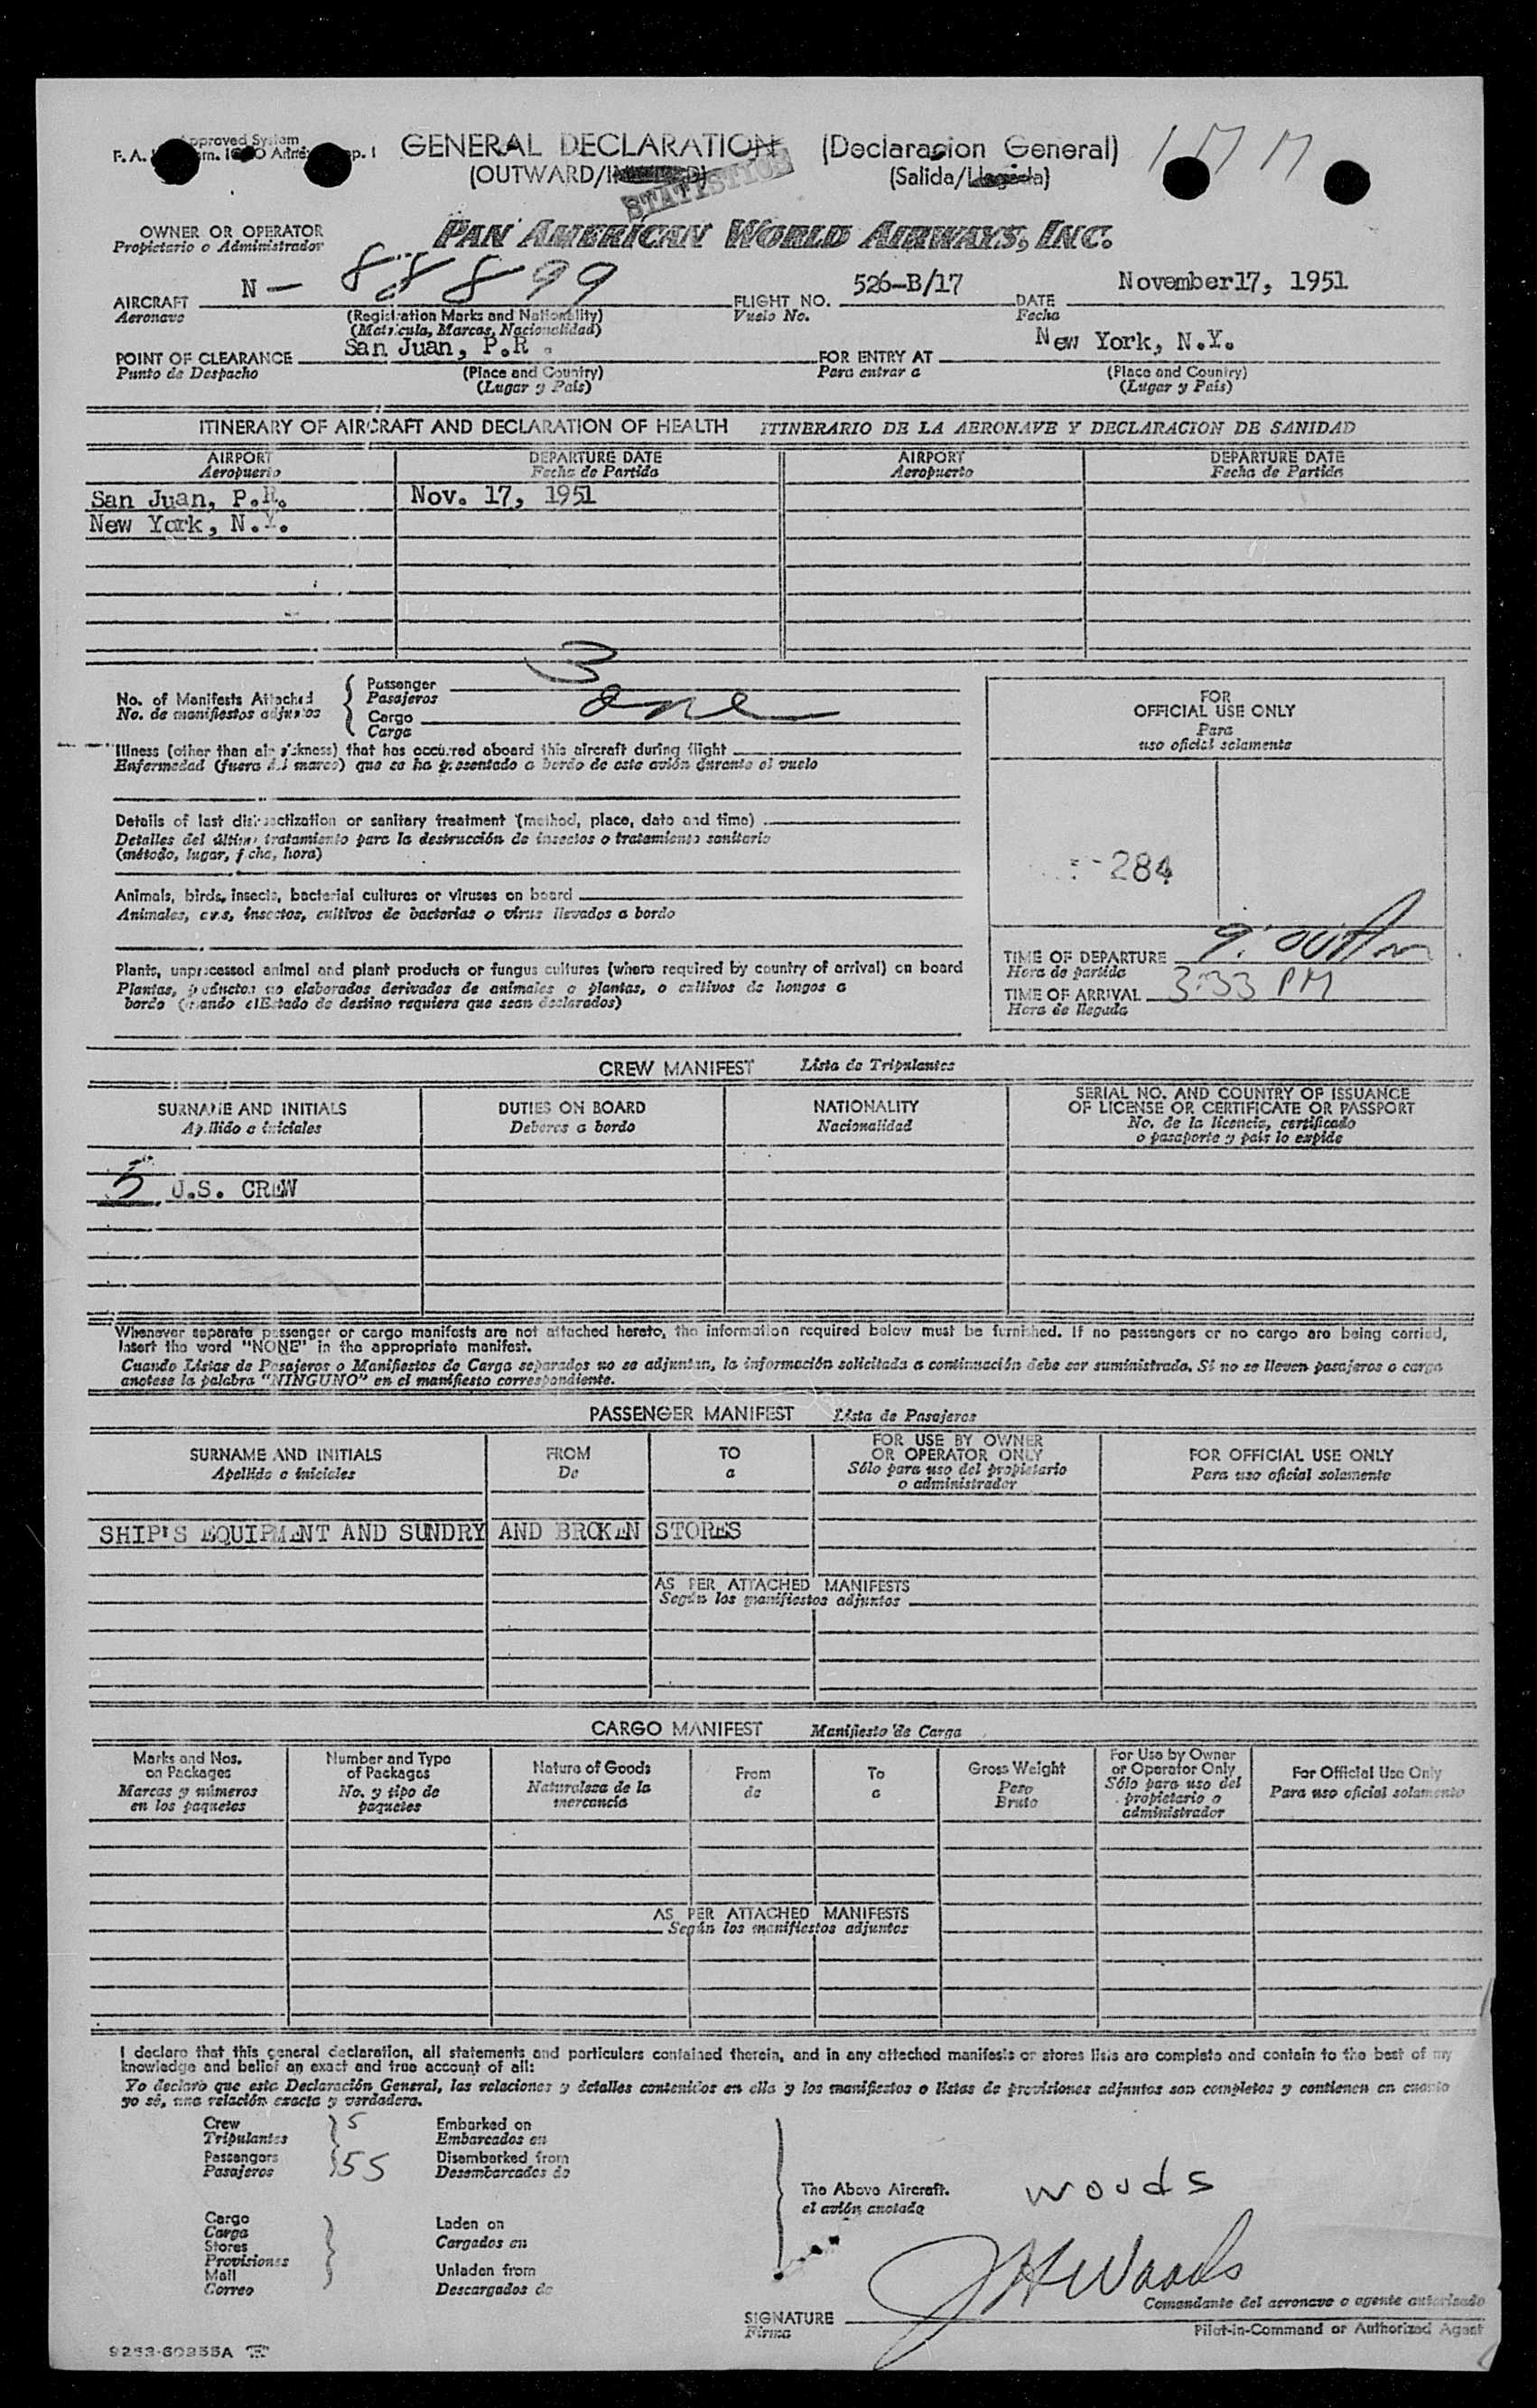 Approved System
F. A. L.
GENERAL DECLARATION (Declaracion General)
(OUTWARD/ (Salida/Llegada)
STATISTICS
OWNER OR OPERATOR
Propietario o Administrador
PAN AMERICAN WORLD AIRWAYS, INC.
AIRCRAFT N- 88899 FLIGHT NO. 526-B/17 DATE November17, 1951
Aeronave (Registration Marks and Nationality) Vuelo No. Fecha
(Matricula, Marcas, Nacionalidad)
POINT OF CLEARANCE San Juan, P.R. FOR ENTRY AT New York, N.Y.
Punto de Despacho (Place and Country) Para entrar a (Place and Country)
(Lugar y País) (Lugar y País)
ITINERARY OF AIRCRAFT AND DECLARATION OF HEALTH ITINERARIO DE LA AERONAVE Y DECLARACION DE SANIDAD
AIRPORT DEPARTURE DATE AIRPORT DEPARTURE DATE
Aeropuerto Fecha de Partida Aeropuerto Fecha de Partida
San Juan, P.R. Nov. 17, 1951
New York, N.Y.
No. of Manifests Attached
No. de manifiestos adjuntos
Passenger 3
Pasajeros
Cargo one
Carga
Illness (other than air sickness) that has occurred aboard this aircraft during flight
Enfermedad (fuera del mareo) que se ha presentado a bordo de este avión durante el vuelo
Details of last disinsectization or sanitary treatment (method, place, date and time)
Detalles del último tratamiento para la destrucción de insectos o tratamiento sanitario
(método, lugar, fecha, hora)
Animals, birds, insects, bacterial cultures or viruses on board
Animales, aves, insectos, cultivos de bacterias o virus llevados a bordo
Plants, unprocessed animal and plant products or fungus cultures (where required by country of arrival) on board
Plantas, productos no elaborados derivados de animales o plantas, o cultivos de hongos a
bordo (cuando el Estado de destino requiera que sean declarados)
FOR
OFFICIAL USE ONLY
Para
uso oficial solamente
284
TIME OF DEPARTURE
Hora de partida
TIME OF ARRIVAL 3:33 PM
Hora de llegada
CREW MANIFEST Lista de Tripulantes
SURNAME AND INITIALS DUTIES ON BOARD NATIONALITY SERIAL NO. AND COUNTRY OF ISSUANCE
OF LICENSE OR CERTIFICATE OR PASSPORT
Apellido e iniciales Deberes a bordo Nacionalidad No. de la licencia, certificado
o pasaporte y país lo expide
5 U.S. CREW
Whenever separate passenger or cargo manifests are not attached hereto, the information required below must be furnished. If no passengers or no cargo are being carried,
insert the word "NONE" in the appropriate manifest.
Cuando Listas de Pasajeros o Manifiestos de Carga separados no se adjuntan, la información solicitada a continuación debe ser suministrada. Si no se lleven pasajeros o carga
anotese la palabra "NINGUNO" en el manifiesto correspondiente.
PASSENGER MANIFEST Lista de Pasajeros
SURNAME AND INITIALS FROM TO FOR USE BY OWNER
OR OPERATOR ONLY FOR OFFICIAL USE ONLY
Apellido e iniciales De a Sólo para uso del propietario
o administrador Para uso oficial solamente
SHIP'S EQUIPMENT AND SUNDRY AND BROKEN STORES
AS PER ATTACHED MANIFESTS
Según los manifiestos adjuntos
CARGO MANIFEST Manifiesto de Carga
Marks and Nos.
on Packages
Marcas y números
en los paquetes
Number and Type
of Packages
No. y tipo de
paquetes
Nature of Goods
Naturaleza de la
mercancía
From
de
To
a
Gross Weight
Peso
Bruto
For Use by Owner
or Operator Only
Sólo para uso del
propietario o
administrador
For Official Use Only
Para uso oficial solamente
AS PER ATTACHED MANIFESTS
Según los manifiestos adjuntos
I declare that this general declaration, all statements and particulars contained therein, and in any attached manifests or stores lists are complete and contain to the best of my
knowledge and belief an exact and true account of all:
Yo declaro que esta Declaración General, las relaciones y detalles contenidos en ella y los manifiestos o listas de provisiones adjuntos son completos y contienen en cuanto
yo sé, una relación exacta y verdadera.
Crew 5 Embarked on
Tripulantes Embarcados en
Passengers 55 Disembarked from
Pasajeros Desembarcados de
Cargo
Carga
Stores
Provisiones
Mail
Correo
Laden on
Cargados en
Unladen from
Descargados de
The Above Aircraft.
el avión anotado
woods
JHWoods
Comandante del aeronave o agente autorizado
SIGNATURE
Firma
Pilot-in-Command or Authorized Agent
9263-60255A